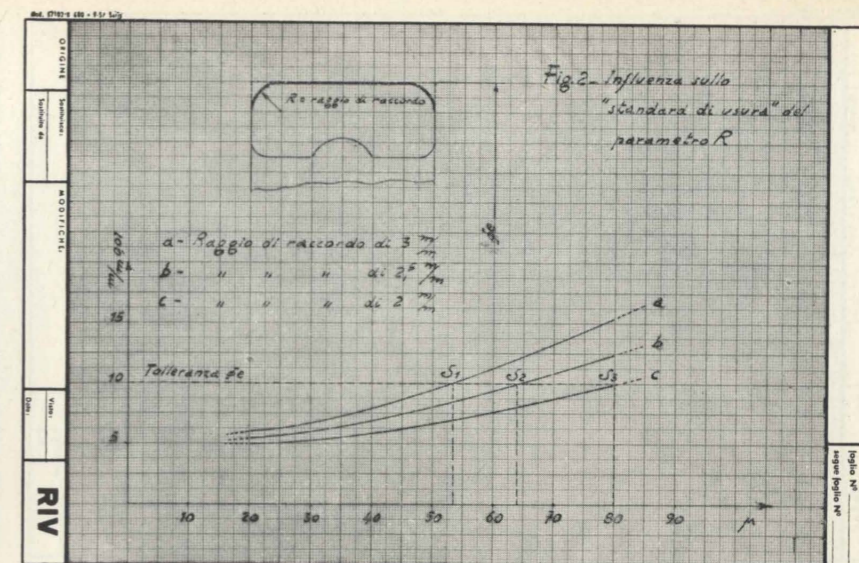 ORIGINE
Sostituisce:
Sostituito da
MODIFICHE:
Visto:
Data:
RIV
R = raggio di raccordo
Fig. 2 - Influenza sullo
"standard di usura" del
parametro R
a - Raggio di raccordo di 3 m/m
b - " " " di 2,5 m/m
c - " " " di 2 m/m
15
10
5
Tolleranza
S1
S2
S3
a
b
c
10 20 30 40 50 60 70 80 90 μ
foglio N°
segue foglio N°